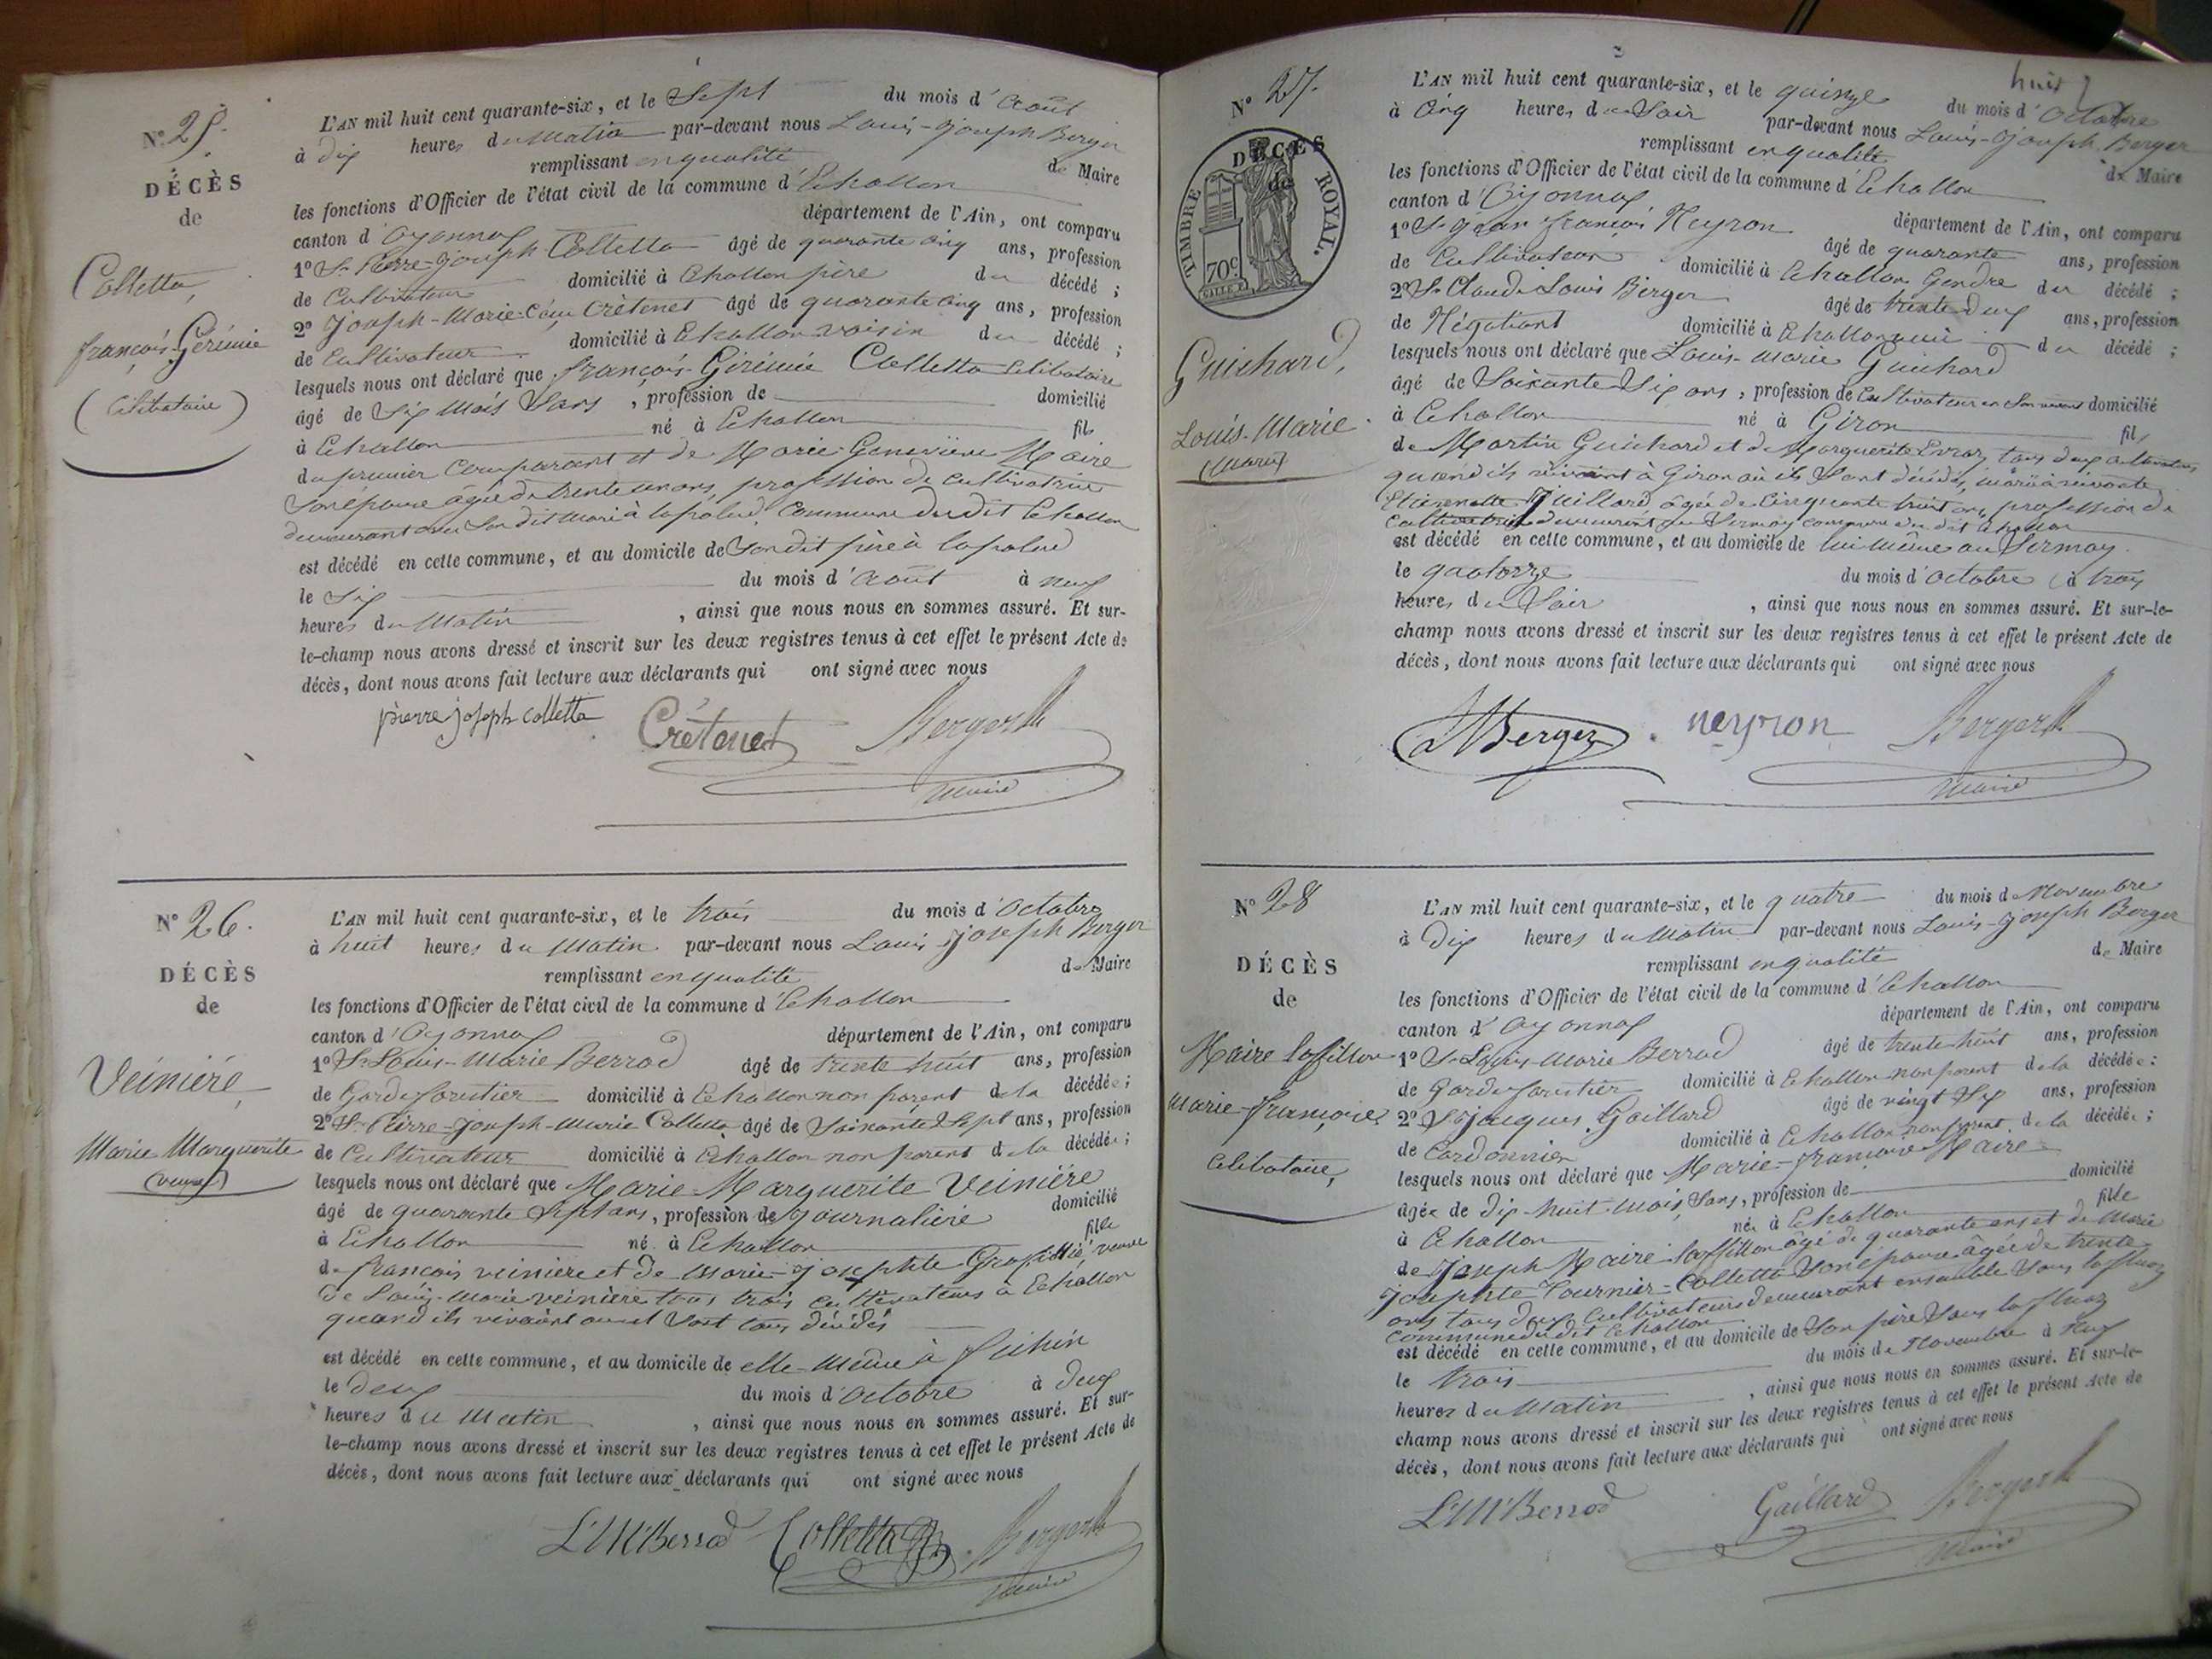 N° 25.
DÉCÈS
de
Colletta,
françois-Gérémie
(Célibataire)
L'AN mil huit cent quarante-six, et le Sept du mois d'Août
à dix heures du Matin par-devant nous Louis-Joseph Berger
remplissant en qualité de Maire
les fonctions d'Officier de l'état civil de la commune d'Echallon
canton d'Oyonnax département de l'Ain, ont comparu
1° Sr Pierre-Joseph Colletta âgé de quarante cinq ans, profession
de Cultivateur domicilié à Echallon père du décédé ;
2° Joseph-Marie Crétenet âgé de quarante cinq ans, profession
de Cultivateur domicilié à Echallon voisin du décédé ;
lesquels nous ont déclaré que françois-Gérémie Colletta Célibataire
âgé de Six Mois Sans, profession de domicilié
à Echallon né à Echallon fils
du premier Comparant et de Marie Geneviève Maire
Son épouse âgée de trente un ans, profession de Cultivatrice
demeurant avec Son dit Mari à la palud, Commune du dit Echallon
est décédé en cette commune, et au domicile de Son dit père à la palud
le Six du mois d'Août à neuf
heures du Matin, ainsi que nous nous en sommes assuré. Et sur-
le-champ nous avons dressé et inscrit sur les deux registres tenus à cet effet le présent Acte de
décès, dont nous avons fait lecture aux déclarants qui ont signé avec nous
pierre joseph colletta Crétenet Berger
Maire
N° 26.
DÉCÈS
de
Veinière,
Marie-Marguerite
(veuve)
L'AN mil huit cent quarante-six, et le trois du mois d'Octobre
à huit heures du Matin par-devant nous Louis Joseph Berger
remplissant en qualité de Maire
les fonctions d'Officier de l'état civil de la commune d'Echallon
canton d'Oyonnax département de l'Ain, ont comparu
1° Sr Louis-Marie Berrod âgé de trente huit ans, profession
de Garde forestier domicilié à Echallon non parent de la décédée ;
2° Sr Pierre-Joseph-Marie Colletta âgé de Soixante Sept ans, profession
de Cultivateur domicilié à Echallon non parent de la décédée ;
lesquels nous ont déclaré que Marie-Marguerite Veinière
âgé de quarante Sept ans, profession de Journalière domicilié
à Echallon né à Echallon fille
de françois veinière et de Marie-Josephte veuve
de Louis-Marie veinière tous trois cultivateurs à Echallon
quand ils vivaient où ils Sont tous décédés
est décédé en cette commune, et au domicile de elle-Même à
le deux du mois d'Octobre à deux
heures du Matin, ainsi que nous nous en sommes assuré. Et sur-
le-champ nous avons dressé et inscrit sur les deux registres tenus à cet effet le présent Acte de
décès, dont nous avons fait lecture aux déclarants qui ont signé avec nous
LMBerrod Colletta Berger
Maire
huit
N° 27.
TIMBRE ROYAL.
70c
DÉCÈS
de
Guichard,
Louis-Marie
(Marié)
L'AN mil huit cent quarante-six, et le quinze du mois d'Octobre
à Cinq heures du Soir par-devant nous Louis-Joseph Berger
remplissant en qualité de Maire
les fonctions d'Officier de l'état civil de la commune d'Echallon
canton d'Oyonnax département de l'Ain, ont comparu
1° Sr Jean françois Neyron âgé de quarante ans, profession
de Cultivateur domicilié à Echallon Gendre du décédé ;
2° Sr Claude Louis Berger âgé de trente deux ans, profession
de Négotiant domicilié à Echallon ami du décédé ;
lesquels nous ont déclaré que Louis-Marie Guichard
âgé de Soixante Six ans, profession de Cultivateur en Son vivant domicilié
à Echallon né à Giron fils
de Martin Guichard et de Marguerite Evraz, tous deux cultivateurs
quand ils vivaient à Giron où ils Sont décédés, marié à vivante
Etiennette Juillard, âgée de Cinquante huit ans, profession de
Cultivatrice demeurant au Sermay commune du dit Echallon
est décédé en cette commune, et au domicile de lui même au Sermay
le quatorze du mois d'Octobre à trois
heures du Soir, ainsi que nous nous en sommes assuré. Et sur-le-
champ nous avons dressé et inscrit sur les deux registres tenus à cet effet le présent Acte de
décès, dont nous avons fait lecture aux déclarants qui ont signé avec nous
Berger neyron Berger
Maire
N° 28
DÉCÈS
de
Maire laffillon
Marie-françoise
Célibataire,
L'AN mil huit cent quarante-six, et le quatre du mois de Novembre
à Dix heures du Matin par-devant nous Louis-Joseph Berger
remplissant en qualité de Maire
les fonctions d'Officier de l'état civil de la commune d'Echallon
canton d'Oyonnax département de l'Ain, ont comparu
1° Sr Louis-Marie Berrod âgé de trente-huit ans, profession
de Garde forestier domicilié à Echallon non parent de la décédée ;
2° Sr Jacques Gaillard âgé de vingt Six ans, profession
de Cordonnier domicilié à Echallon non parent de la décédée ;
lesquels nous ont déclaré que Marie-françoise Maire
âgée de dix-huit-Mois, Sans, profession de domicilié
à Echallon née à Echallon fille
de Joseph Maire-laffillon âgé de quarante ans et de Marie
Josephte Tournier-Colletta Son épouse âgée de trente
ans tous deux Cultivateurs demeurant ensemble Sous
commune du dit Echallon
est décédé en cette commune, et au domicile de Son père Sous
le trois du mois de Novembre à Neuf
heures du Matin, ainsi que nous nous en sommes assuré. Et sur-le-
champ nous avons dressé et inscrit sur les deux registres tenus à cet effet le présent Acte de
décès, dont nous avons fait lecture aux déclarants qui ont signé avec nous
LMBerrod Gaillard Berger
Maire